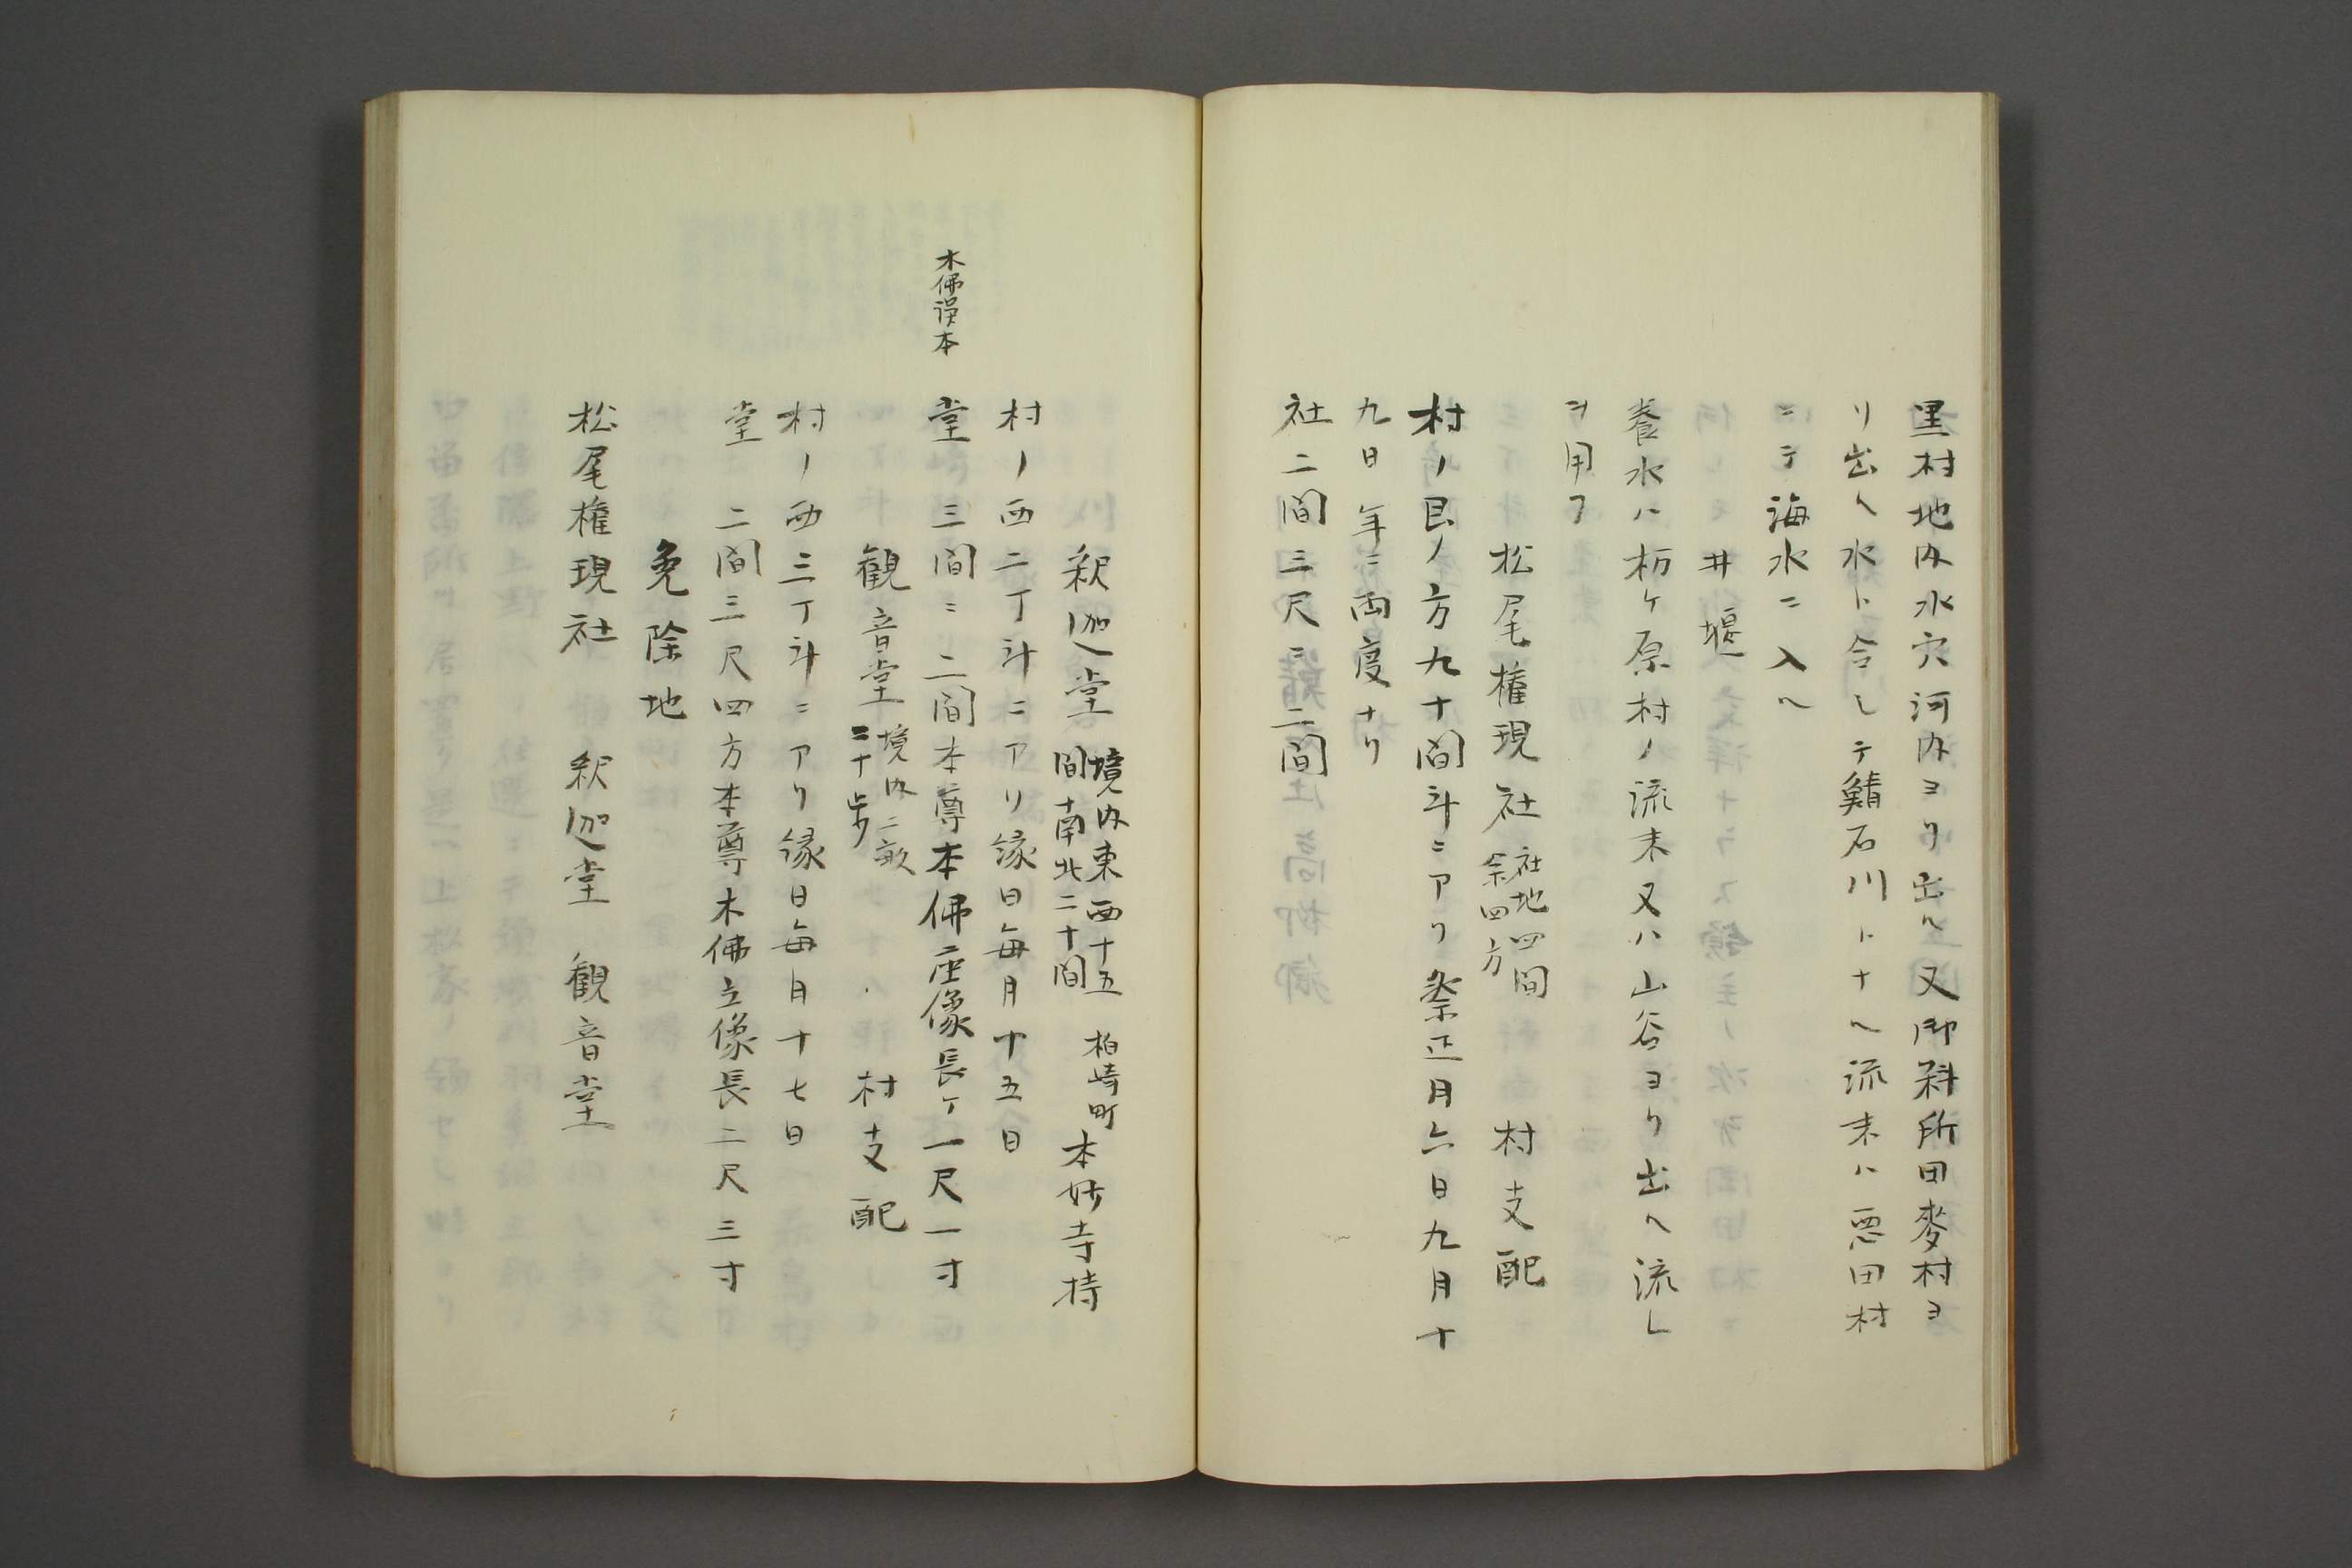 黒村地内水穴河内ヨリ出ル又御料所田麥村ヨ
リ出ル水ト合シテ鯖石川トナル流末ハ悪田村
ニテ海水ニ入ル
井堰
養水ハ栃ケ原村ノ流末又ハ山谷ヨリ出ル流レ
ヲ用フ
松尾權現社 社地四間余四方 村支配
村ノ艮ノ方九十間斗ニアリ祭正月六日九月十
九日年ニ両度ナリ
社二間三尺ニ二間
釈迦堂 境内東西十五間南北二十間 柏崎町 本妙寺持
村ノ西二丁斗ニアリ縁日毎月十五日
木佛誤本
堂 三間ニ二間本尊本佛座像長ケ一尺一寸
観音堂 境内二畝二十歩 村支配
村ノ西三丁斗ニアリ縁日毎月十七日
堂 二間三尺四方本尊木佛立像長二尺三寸
免除地
松尾權現社 釈迦堂 観音堂